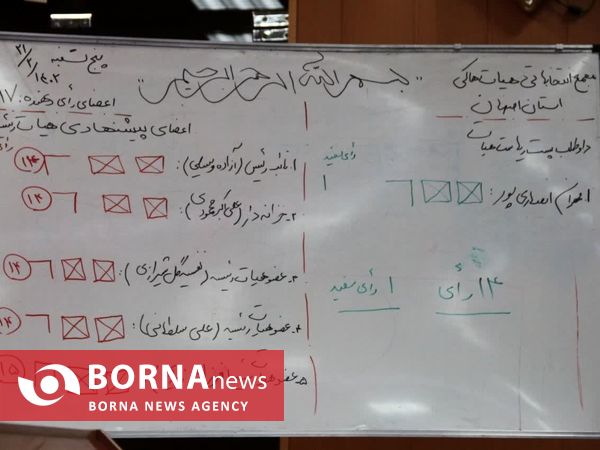 بسم الله الرحمن الرحیم
پنج شنبه
۱۴۰۲/۲/۲۱
مجمع انتخاباتی هیات هاکی
استان اصفهان
داوطلب پست ریاست هیات
۱. بهرام انصاری پور:
رأی سفید
۱
۱۴ رأی
۱ رأی سفید
اعضای رأی دهنده: ۱۷
اعضای پیشنهادی هیات رئیسه
رأی
۱. نائب رئیس (آزاده وسلی):
۱۴
۲. خزانه دار (علی اکبر محمودی):
۱۴
۳. عضو هیات رئیسه (نفیسه گل شیرازی):
۱۴
۴. عضو هیات رئیسه (علی سلطانی):
۱۴
۵. عضو هیات
۱۵
BORNA news
BORNA NEWS AGENCY